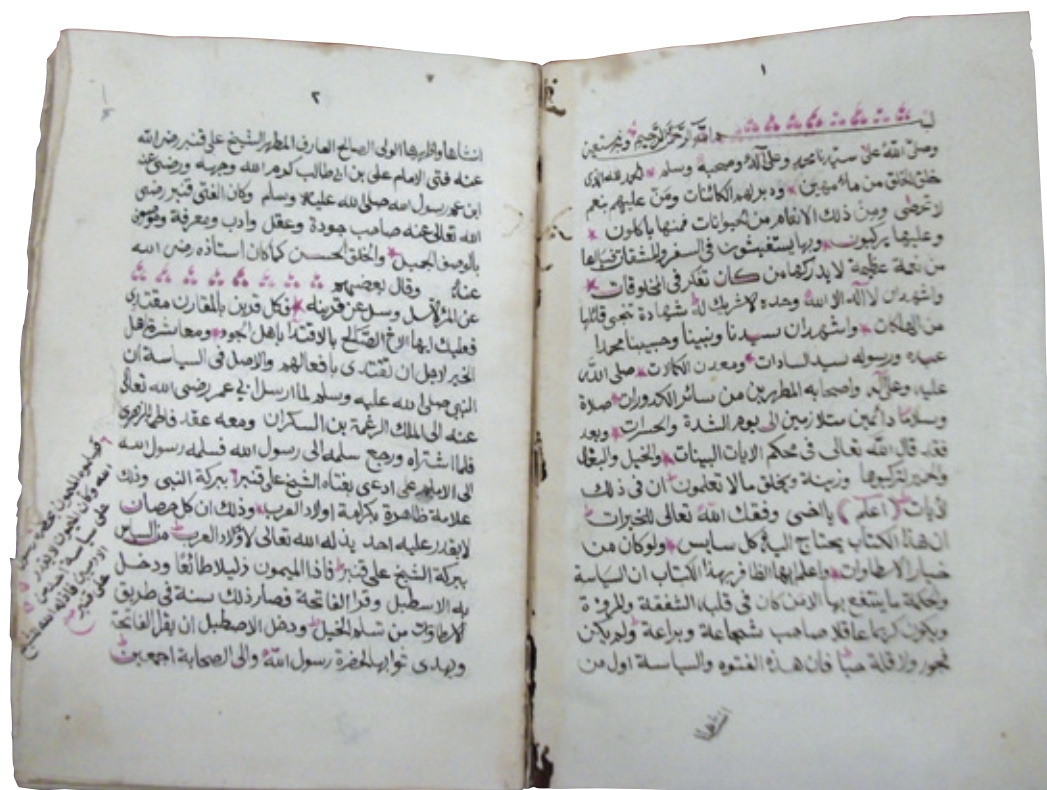 ١
بسم الله الرحمن الرحيم وبه نستعين
وصلى الله على سيدنا محمد وعلى آله وصحبه وسلم الحمد لله الذي
خلق الخلق من ماء مهين ودبر لهم الكائنات ومن عليهم بنعم
لا تحصى ومن ذلك الانعام من الحيوانات فمنها يأكلون
وعليها يركبون وبها يستغيثون في السفر والمشقات فيالها
من نعمة عظيمة لا يدركها من كان تفكر في المخلوقات
واشهد ان لا اله الا الله وحده لا شريك له شهادة تنجي قائلها
من الهلكات واشهد ان سيدنا ونبينا وحبيبنا محمدا
عبده ورسوله سيد السادات ومعدن الكمالات صلى الله
عليه وعلى آله واصحابه المطهرين من سائر الكدورات صلاة
وسلاما دائمين متلازمين الى يوم الشدة والحسرات وبعد
فقد قال الله تعالى في محكم الايات البينات والخيل والبغال
والحمير لتركبوها وزينة ويخلق ما لا تعلمون ان في ذلك
لآيات (اعلم) يا أخي وفقك الله تعالى للخيرات
ان هذا الكتاب يحتاج اليه كل سايس ولو كان من
خيار الاسطاوات واعلم ايها الظافر بهذا الكتاب ان السياسة
والحكمة ما ينتفع بها الا من كان في قلبه الشفقة والمروة
ويكون كريما عاقلا صاحب شجاعة وبراعة ولم يكن
فجور ولا قلة حيا فان هذه الفتوه والسياسة اول من
انشاها
٢
انشاها واظهرها الولي الصالح العارف المطهر الشيخ علي قنبر رضي الله
عنه فتى الامام علي بن ابي طالب كرم الله وجهه ورضي عنه
ابن عم رسول الله صلى الله عليه وسلم وكان الفتى قنبر رضي
الله تعالى عنه صاحب جودة وعقل وادب ومعرفة
بالوصف الجميل والخلق الحسن كما كان استاذه رضي الله
عنه وقال بعضهم
عن المرء لا تسل وسل عن قرينه فكل قرين بالمقارن مقتدي
فعليك ايها الاخ الصالح بالاقتدا باهل الجود ومعاشرة اهل
الخير لاجل ان تقتدي بافعالهم والاصل في السياسة ان
النبي صلى الله عليه وسلم لما ارسل عمر رضي الله تعالى
عنه الى الملك بن السكران ومعه عقد فاطمة الزهرى
فلما اشتراه ورجع سلمه الى رسول الله فسلمه رسول الله
الى الامام علي ادعى بفتاه الشيخ علي قنبر ببركة النبي وذلك
علامة ظاهرة بكرامة اولاد العرب وذلك ان كل حصان
لا يقدر عليه احد يذله الله تعالى لأولاد العرب من السر
ببركة الشيخ علي قنبر فاذا الميمون ذليلا طائعا ودخل
به الاسطبل وقرا الفاتحة وصار ذلك سنة في طريق
الاسطاوات من تسلم الخيل ودخل الاصطبل ان يقرا الفاتحة
ويهدي ثوابها لحضرة رسول الله والى الصحابة اجمعين
على سياسة احد من
الادميين
على قنبر